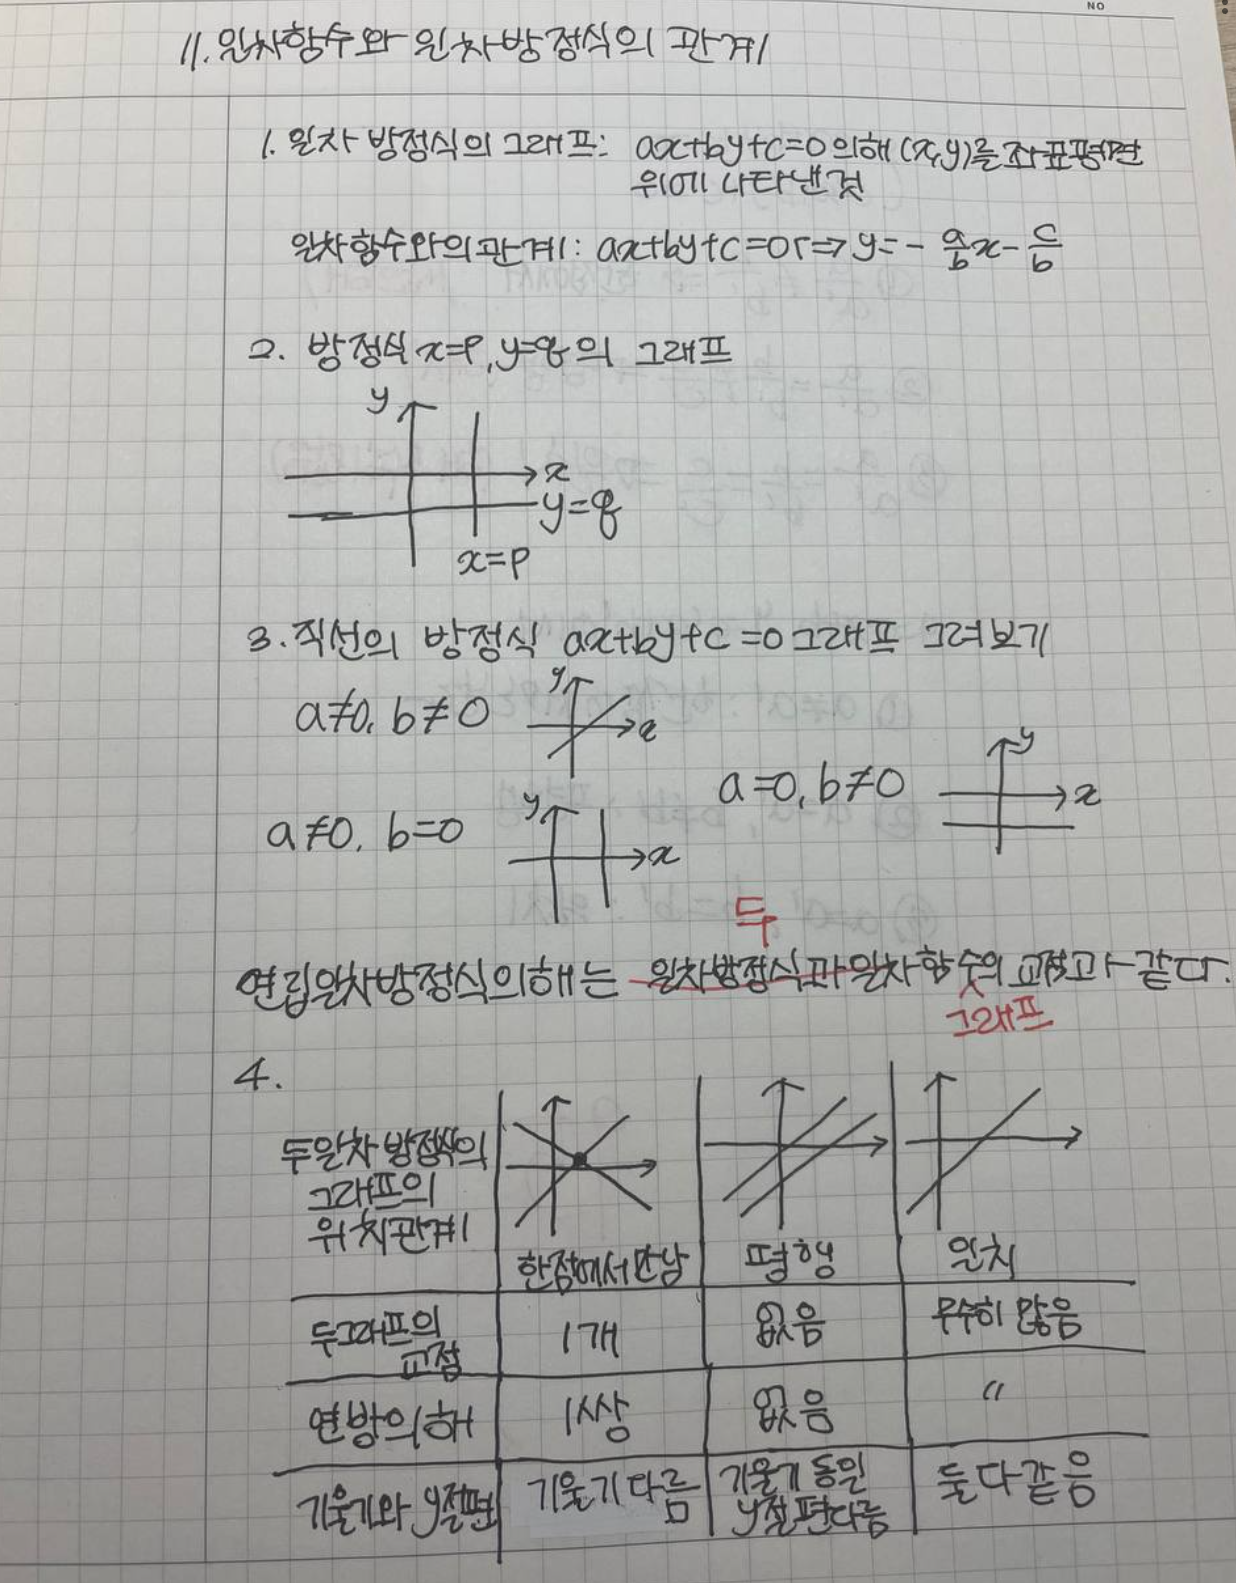 NO
11. 일차함수와 일차방정식의 관계
1. 일차 방정식의 그래프: ax+by+c=0의해 (x,y)를 좌표평면
위에 나타낸것
일차함수와의관계: ax+by+c=0 ⇒ y=- a/b x - c/b
2. 방정식 x=p, y=q의 그래프
y
x
y=q
x=p
3. 직선의 방정식 ax+by+c=0그래프 그려보기
a≠0, b≠0
y
x
a=0, b≠0
y
x
a≠0, b=0
y
x
두
연립일차방정식의해는 일차방정식과일차함수의 교점과 같다.
그래프
4.
두일차방정식의
그래프의
위치관계
한점에서만남 평행 일치
두그래프의
교점
1개 없음 무수히 많음
연방의해 1쌍 없음 〃
기울기와 y절편 기울기다름 기울기 동일
y절편다름
둘다같음